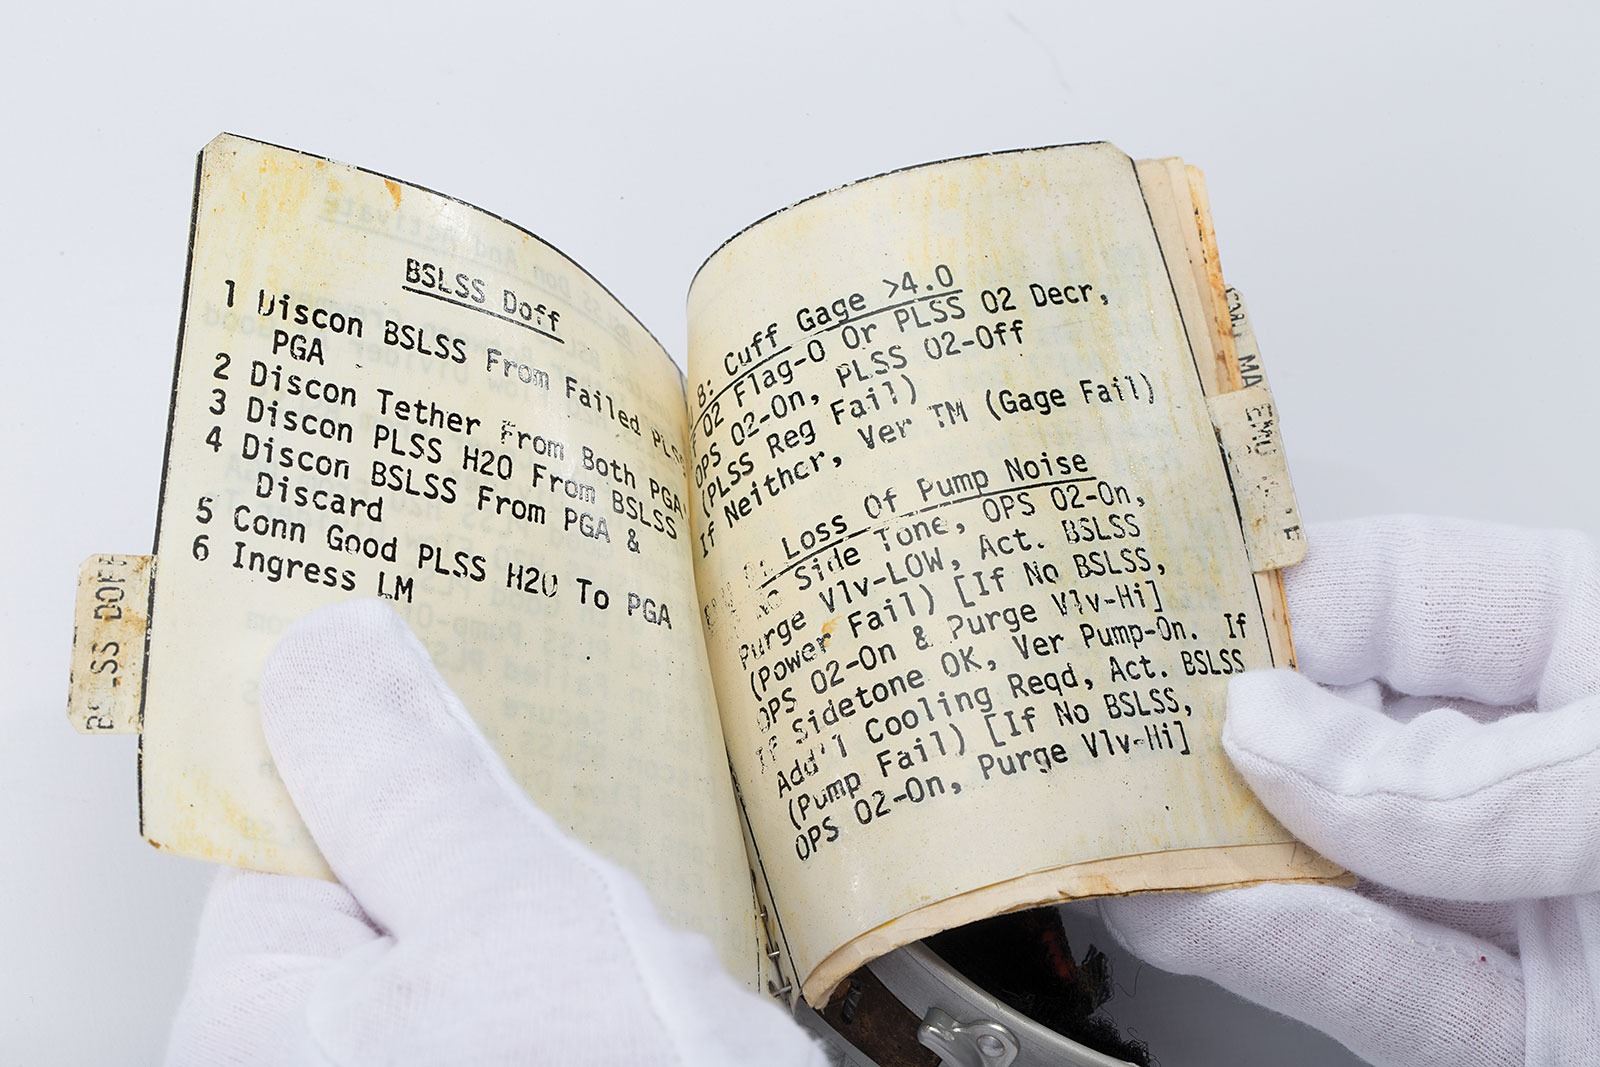 BSLSS Doff
1 Discon BSLSS From Failed PLSS
PGA
2 Discon Tether From Both PGA
3 Discon PLSS H2O From BSLSS
4 Discon BSLSS From PGA &
Discard
5 Conn Good PLSS H2O To PGA
6 Ingress LM
BSLSS DOFF
8: Cuff Gage >4.0
O2 Flag-O Or PLSS O2 Decr,
OPS O2-On, PLSS O2-Off
(PLSS Reg Fail)
If Neither, Ver TM (Gage Fail)
Loss Of Pump Noise
No Side Tone, OPS O2-On,
Purge Vlv-LOW, Act. BSLSS
(Power Fail) [If No BSLSS,
OPS O2-On & Purge Vlv-Hi]
If Sidetone OK, Ver Pump-On. If
Add'l Cooling Reqd, Act. BSLSS
(Pump Fail) [If No BSLSS,
OPS O2-On, Purge Vlv-Hi]